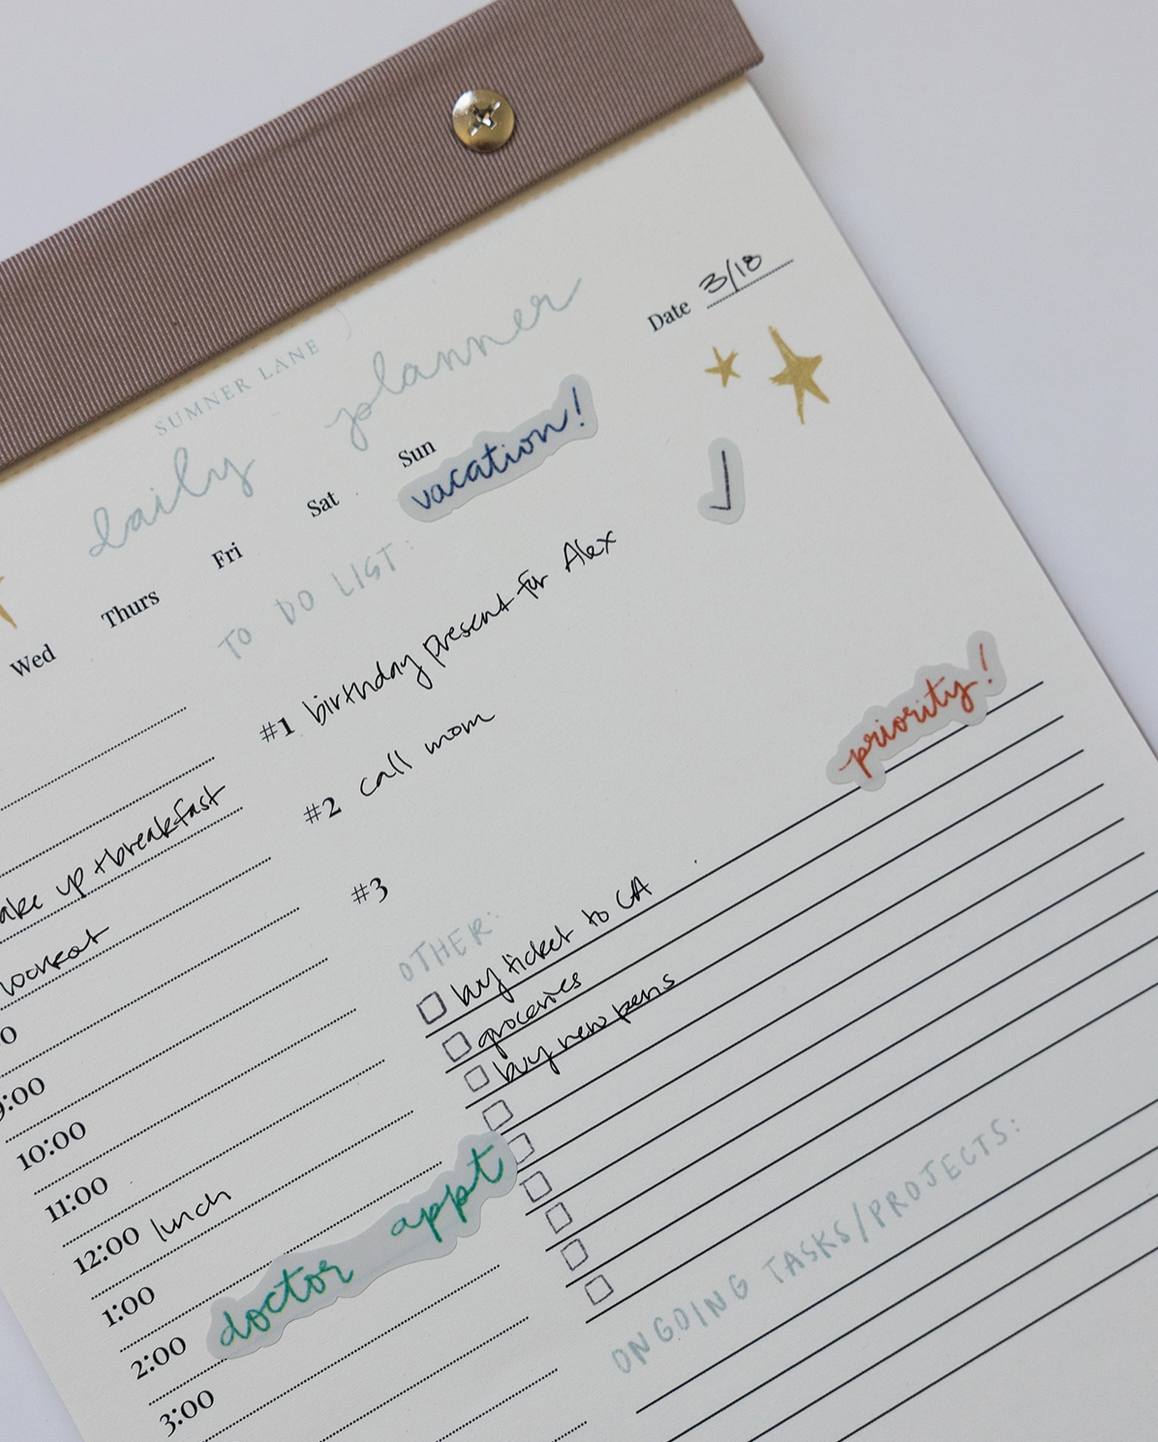 SUMNER LANE
daily planner
Date 3/18
Wed Thurs Fri Sat Sun
vacation!
TO DO LIST:
#1 birthday present for Alex
#2 call mom
#3
priority!
up + breakfast
workout
OTHER:
buy ticket to CA
groceries
buy new pens
10:00
11:00
12:00 lunch
1:00
2:00 doctor appt
3:00
ONGOING TASKS/PROJECTS: